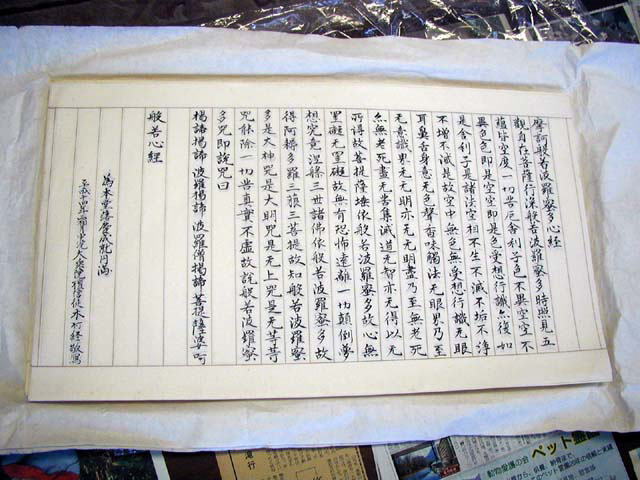 摩訶般若波羅蜜多心経
觀自在菩薩行深般若波羅蜜多時照見五
蘊皆空度一切苦厄舎利子色不異空空不
異色色即是空空即是色受想行識亦復如
是舎利子是諸法空相不生不滅不垢不浄
不増不減是故空中無色無受想行識无眼
耳鼻舌身意无色聲香味觸法无眼界乃至
无意識界无无明亦无无明盡乃至無老死
亦無老死盡无苦集滅道无智亦无得以无
所得故菩提薩埵依般若波羅蜜多故心無
罣礙无罣礙故無有恐怖遠離一切顛倒夢
想究竟涅槃三世諸佛依般若波羅蜜多故
得阿耨多羅三藐三菩提故知般若波羅蜜
多是大神咒是大明咒是无上咒是无等等
咒能除一切苦真實不虚故説般若波羅蜜
多咒即説咒曰
揭諦揭諦 波羅揭諦 波羅僧揭諦 菩提薩婆訶
般若心経
為本堂落慶成就円満
平成十四年
動物愛護の会
ペット霊園